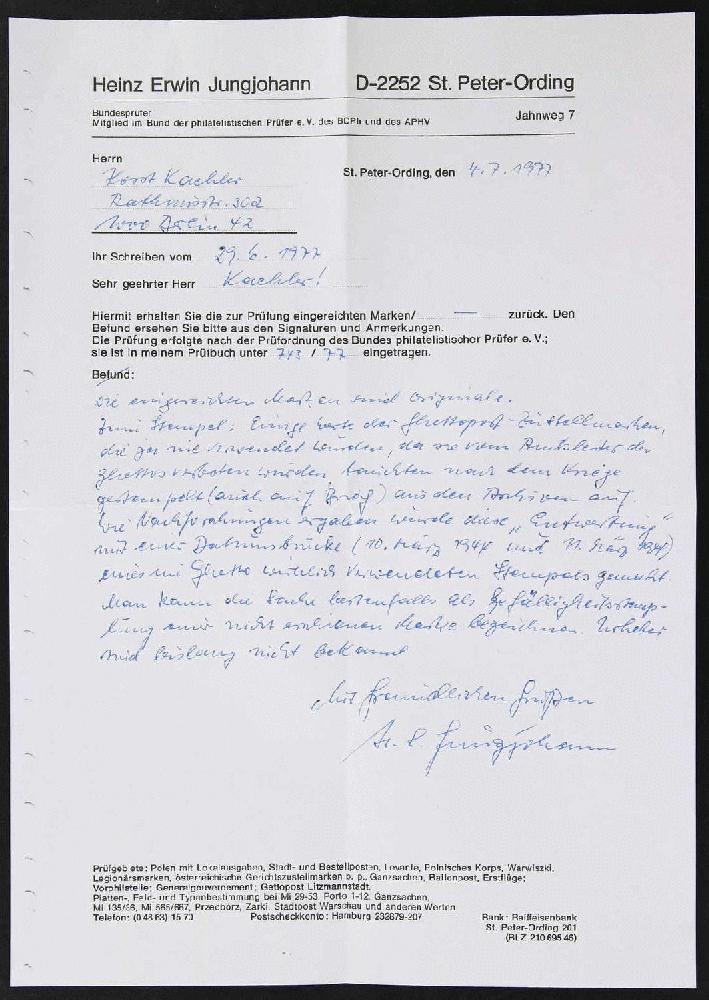 Heinz Erwin Jungjohann D-2252 St. Peter-Ording
Bundesprüfer
Mitglied im Bund der philatelistischen Prüfer e. V. des BDPh und des APHV
Jahnweg 7
Herrn
Horst Kaehler
Rathausstr. 30a
1000 Berlin 42
St. Peter-Ording, den 4. 7. 1977
Ihr Schreiben vom 29. 6. 1977
Sehr geehrter Herr Kaehler!
Hiermit erhalten Sie die zur Prüfung eingereichten Marken/ — zurück. Den
Befund ersehen Sie bitte aus den Signaturen und Anmerkungen.
Die Prüfung erfolgte nach der Prüfordnung des Bundes philatelistischer Prüfer e. V.;
sie ist in meinem Prüfbuch unter 743 / 77 eingetragen.
Befund:
Die eingereichten Marken sind Originale.
Zum Stempel: Einige Werte der Ghettopost-Zustellmarken,
die ja nie verwendet wurden, da sie vom Amtsleiter des
Ghettos verboten wurden, tauchten nach dem Kriege
gestempelt (auch auf Brief) aus den Archiven auf.
Wie Nachforschungen ergaben wurde diese „Entwertung"
mit einer Datumsbrücke (10. März 1944 und 11. März 1944)
eines im Ghetto wirklich verwendeten Stempels gemacht.
Man kann die Sache bestenfalls als Gefälligkeitsstemp-
lung einer nicht erschienenen Marke bezeichnen. Urheber
sind bislang nicht bekannt
Mit freundlichen Grüßen
H. E. Jungjohann
Prüfgebiete: Polen mit Lokalausgaben, Stadt- und Bestellposten, Levante, Polnisches Korps, Warwiszki,
Legionärsmarken, österreichische Gerichtszustellmarken p. p., Ganzsachen, Ballonpost, Erstflüge;
Vorphilatelie; Generalgouvernement; Gettopost Litzmannstadt.
Platten-, Feld- und Typenbestimmung bei Mi 29-53, Porto 1-12, Ganzsachen,
Mi 135/36, Mi 565/567, Przedbórz, Zarki, Stadtpost Warschau und anderen Werten
Telefon: (0 48 63) 15 73 Postscheckkonto: Hamburg 232879-207 Bank: Raiffeisenbank
St. Peter-Ording 201
(BLZ 210 695 46)